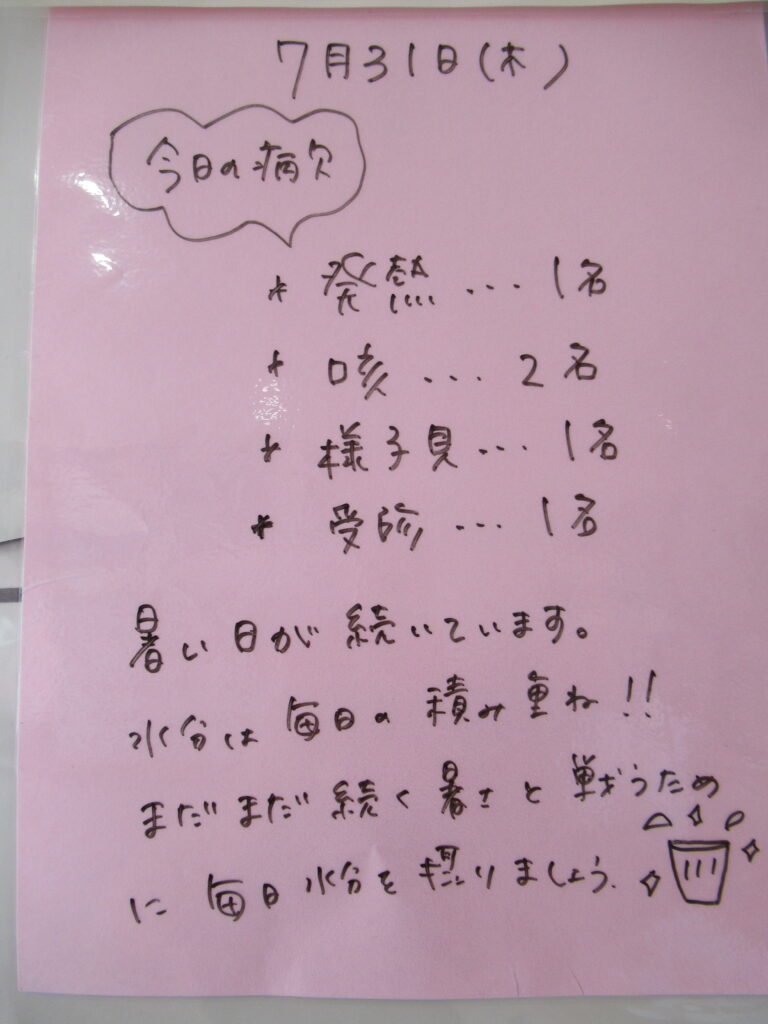 7月31日(木)
今日の病欠
* 発熱...1名
* 咳...2名
* 様子見...1名
* 受診...1名
暑い日が続いています。
水分は毎日の積み重ね!!
まだまだ続く暑さと戦うため
に毎日水分を摂りましょう.